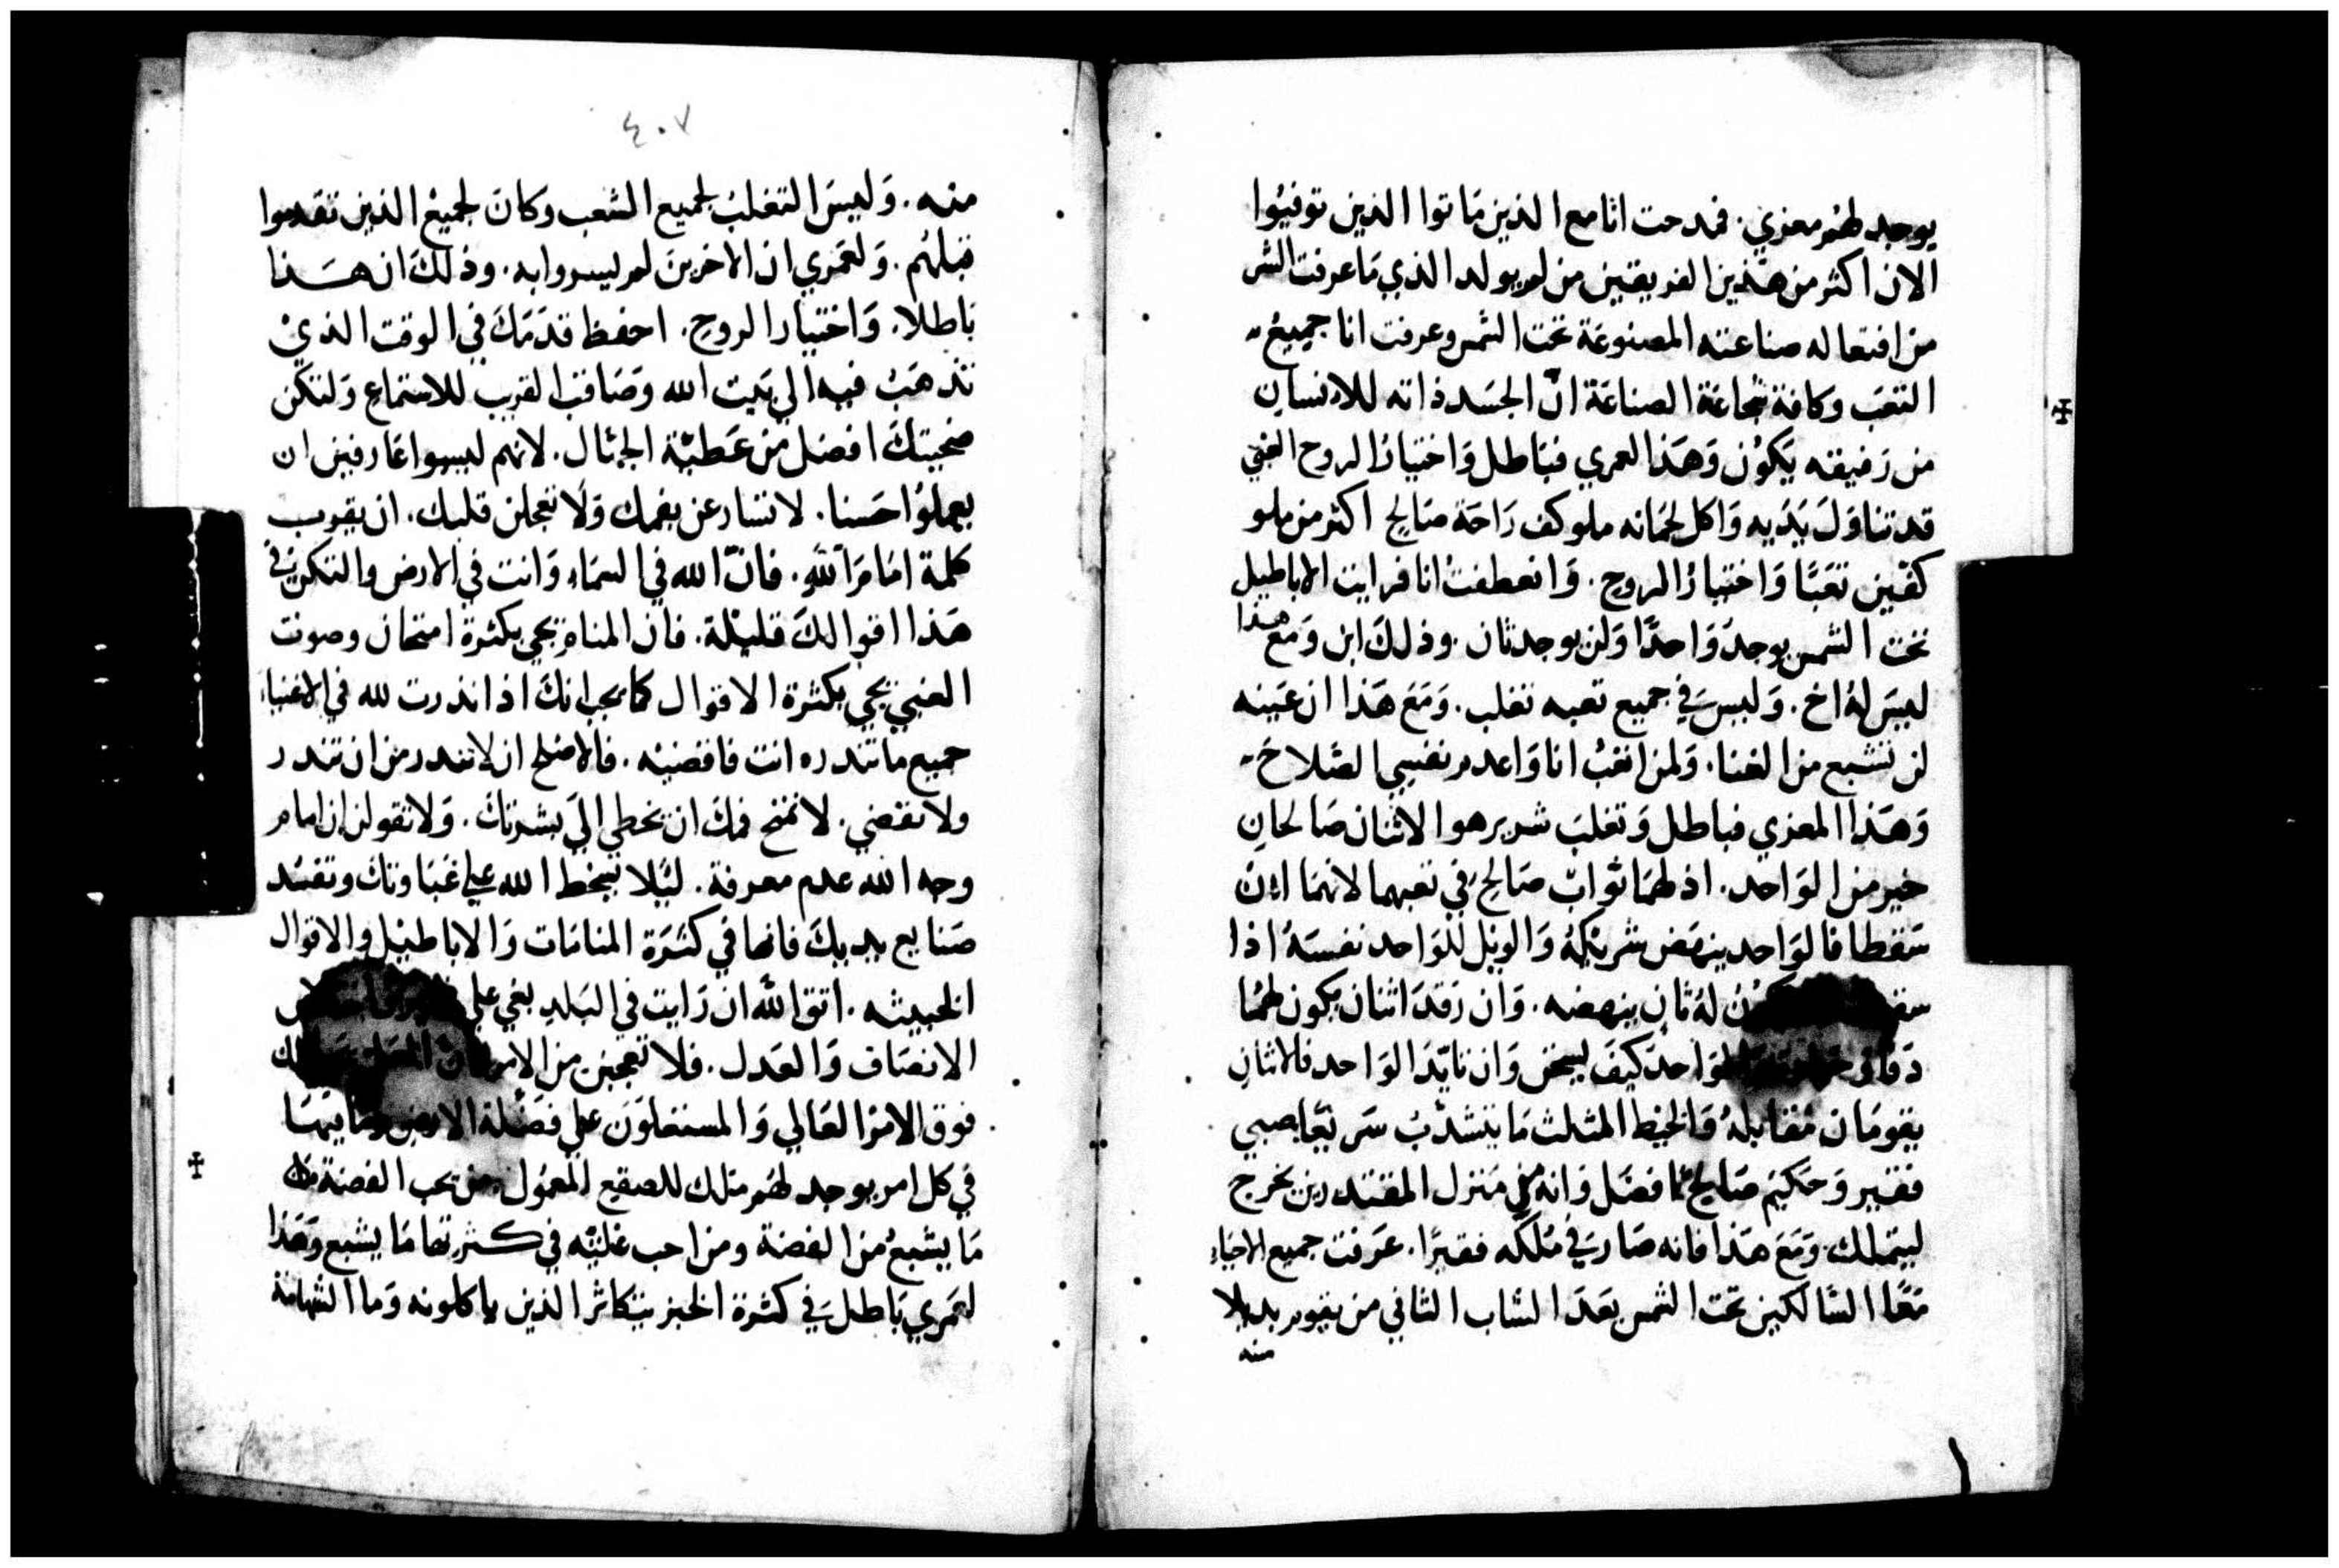 يوجد لهم معزي. فمدحت انا مع الذين ماتوا الذين توفيوا
الان اكثر من هذين الفريقين من لم يولد الذي ما عرفت الشر
من افتعاله صناعته المصنوعة تحت الشمس وعرفت انا جميع
التعب وكافة شجاعة الصناعة ان الجسد ذاته للانسان
من رفيقه يكون وهذا لعمري فباطل واختيار الروح الغبي
قد تناول يديه واكل لحمانه ملو كف راحة صالح اكثر من ملو
كفين تعبا واختيار الروح. وانعطفت انا فرايت الاباطيل
تحت الشمس يوجد واحدا ولن يوجد ثان. وذلك ابن ومع هذا
ليس له اخ. وليس في جميع تعبه تغلب. ومع هذا ان عينه
لن تشبع من الغنا. ولمن اتعب انا واعدم نفسي الصلاح
وهذا المعزي فباطل وتغلب شرير هو الاثنان صالحان
خير من الواحد. اذ لهما ثواب صالح في تعبهما لانهما ان
سقطا فالواحد ينهض شريكه والويل للواحد نفسه اذا
له ثان ينهضه. وان رقد اثنان يكون لهما
كيف يسخن وان تايد الواحد فالاثنان
يقومان مقابله والخيط المثلث ما يتشذب سريعا صبي
فقير وحكيم صالح افضل وانه من منزل المقتدرين يخرج
ليتملك. ومع هذا فانه صار في ملكه فقيرا. عرفت جميع الاحياء
معا السالكين تحت الشمس بعد الشاب الثاني من يقوم بدلا
منه
٤٠٧
منه. وليس التغلب لجميع الشعب وكان لجميع الذين تقدموا
قبلهم. ولعمري ان الاخرين لم يسروا به. وذلك ان هذا
باطلا. واختيار الروح. احفظ قدمك في الوقت الذي
تذهب فيه الي بيت الله وصاقب القريب للاستماع ولتكن
ضحيتك افضل من عطية الجهال. لانهم ليسوا عارفين ان
يعملوا حسنا. لا تسارعن بفمك ولا تعجلن قلبك. ان يقرب
كلمة امام الله. فان الله في السماء وانت في الارض ولتكن في
هذا اقوالك قليلة. فان المنام يجي بكثرة امتحان وصوت
الغبي يجي بكثرة الاقوال كما يجب انك اذا نذرت لله في الاغنياء
جميع ما تنذره انت فاقضيه. فالاصلح ان لا تنذر من ان تنذر
ولا تقضي. لا تمنح فمك ان يخطي الي بشرتك. ولا تقولن ان امام
وجه الله عدم معرفة. ليلا يسخط الله علي غباوتك وتفسد
صنايع يديك فانها في كثرة المنامات والاباطيل والاقوال
الخبيثه. اتق الله ان رايت في البلد بغي علي
الانصاف والعدل. فلا تعجبن من الامر
فوق الامر العالي والمستعلون علي فضلة الارض وما فيها
في كل امر يوجد لهم متلك للصقيع المعمول. من يحب الفضة
ما يشبع من الفضة ومن احب غليته في كثرتها ما يشبع وهذا
لعمري باطل في كثرة الخبز يتكاثر الذين ياكلونه وما الشهامة